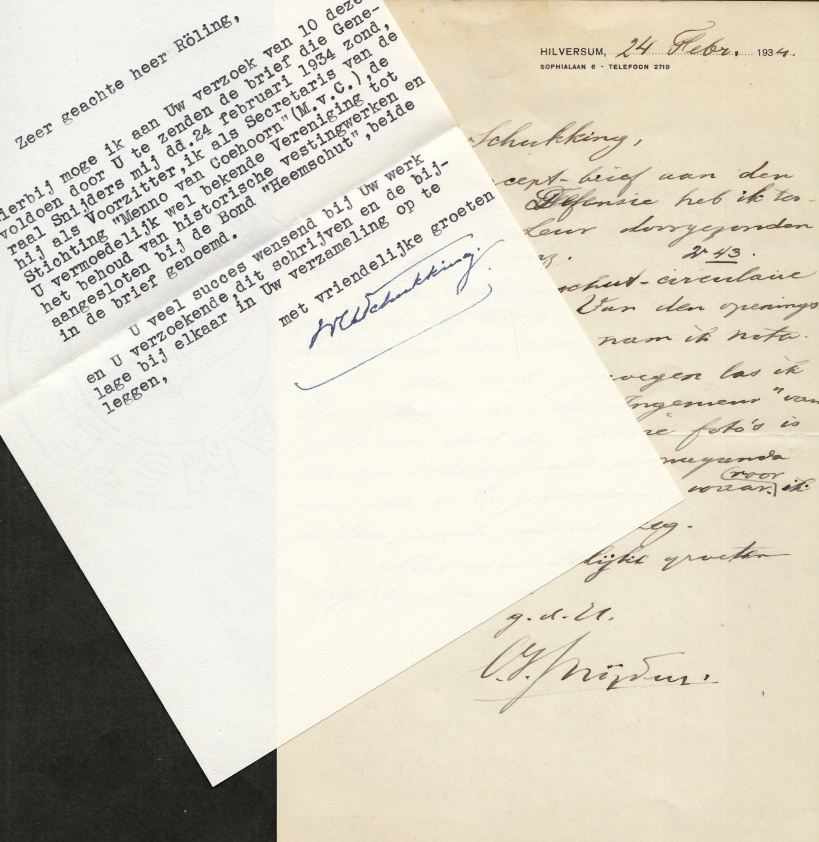 Zeer geachte heer Röling,
ierbij moge ik aan Uw verzoek van 10 deze
voldoen door U te zenden de brief die Gene-
raal Snijders mij dd.24 februari 1934 zond,
hij als Voorzitter,ik als Secretaris van de
Stichting "Menno van Coehoorn"(M.v.C.),de
U vermoedelijk wel bekende Vereniging tot
het behoud van historische vestingwerken en
aangesloten bij de Bond "Heemschut",beide
in de brief genoemd.
U veel succes wensend bij Uw werk
en U verzoekende dit schrijven en de bij-
lage bij elkaar in Uw verzameling op te
leggen,
met vriendelijke groeten
Schukking.
HILVERSUM, 24 Febr. 1934.
SOPHIALAAN 6 - TELEFOON 2719
Schukking,
cept-brief aan den
Defensie heb ik te-
leur doorgezonden
43
schut-circulaire
Van den openings
nam ik nota.
wegen las ik
Ingenieur" van
foto's is
(voor
waar) ik
lijke groeten
g.d.U.
C.J. Snijders.